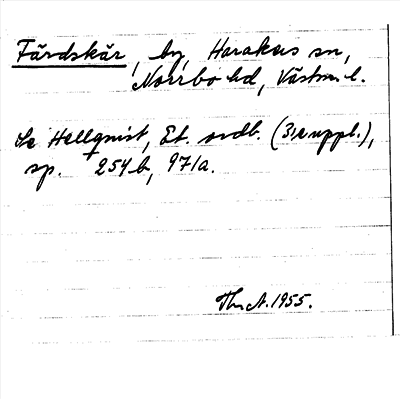 Färdskär, by, Harakers sn,
Norrbo hd, Västm. l.
Se Hellquist, Et. ordb. (3:e uppl.),
sp. 254 b, 971a.
Th. A. 1955.